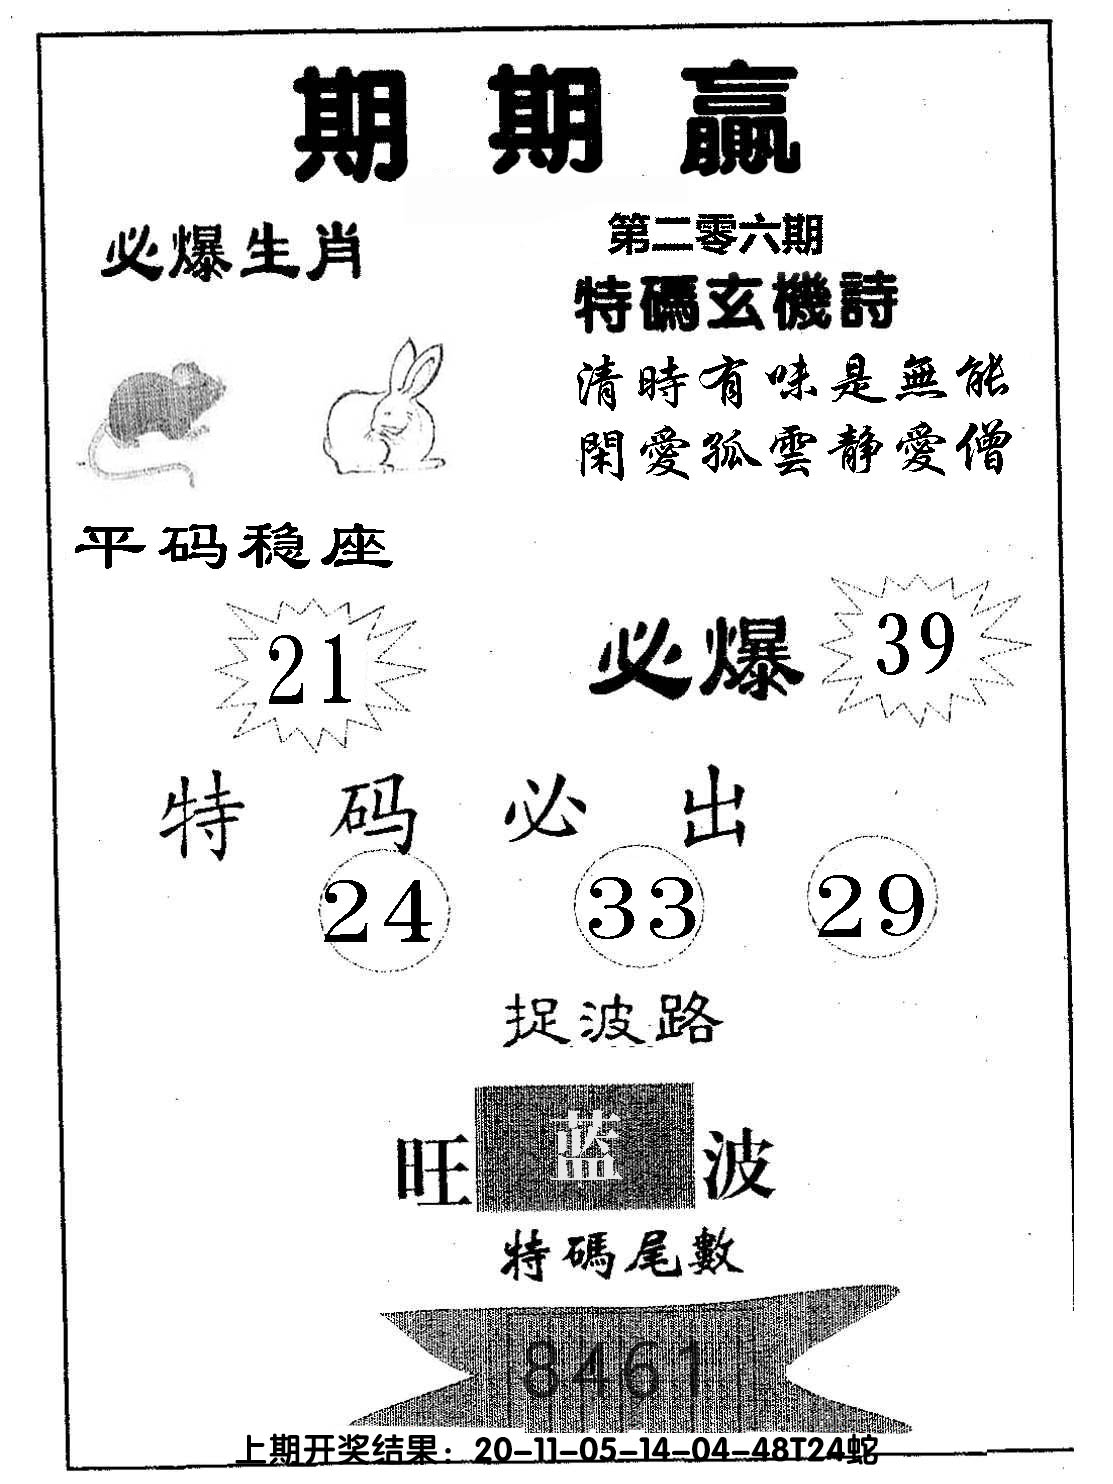 期期赢
必爆生肖
第二零六期
特碼玄機詩
清時有味是無能
閑愛孤雲静愛僧
平码稳座
21
必爆
39
特码必出
24 33 29
捉波路
旺蓝波
特碼尾數
8461
上期开奖结果：20-11-05-14-04-48T24蛇